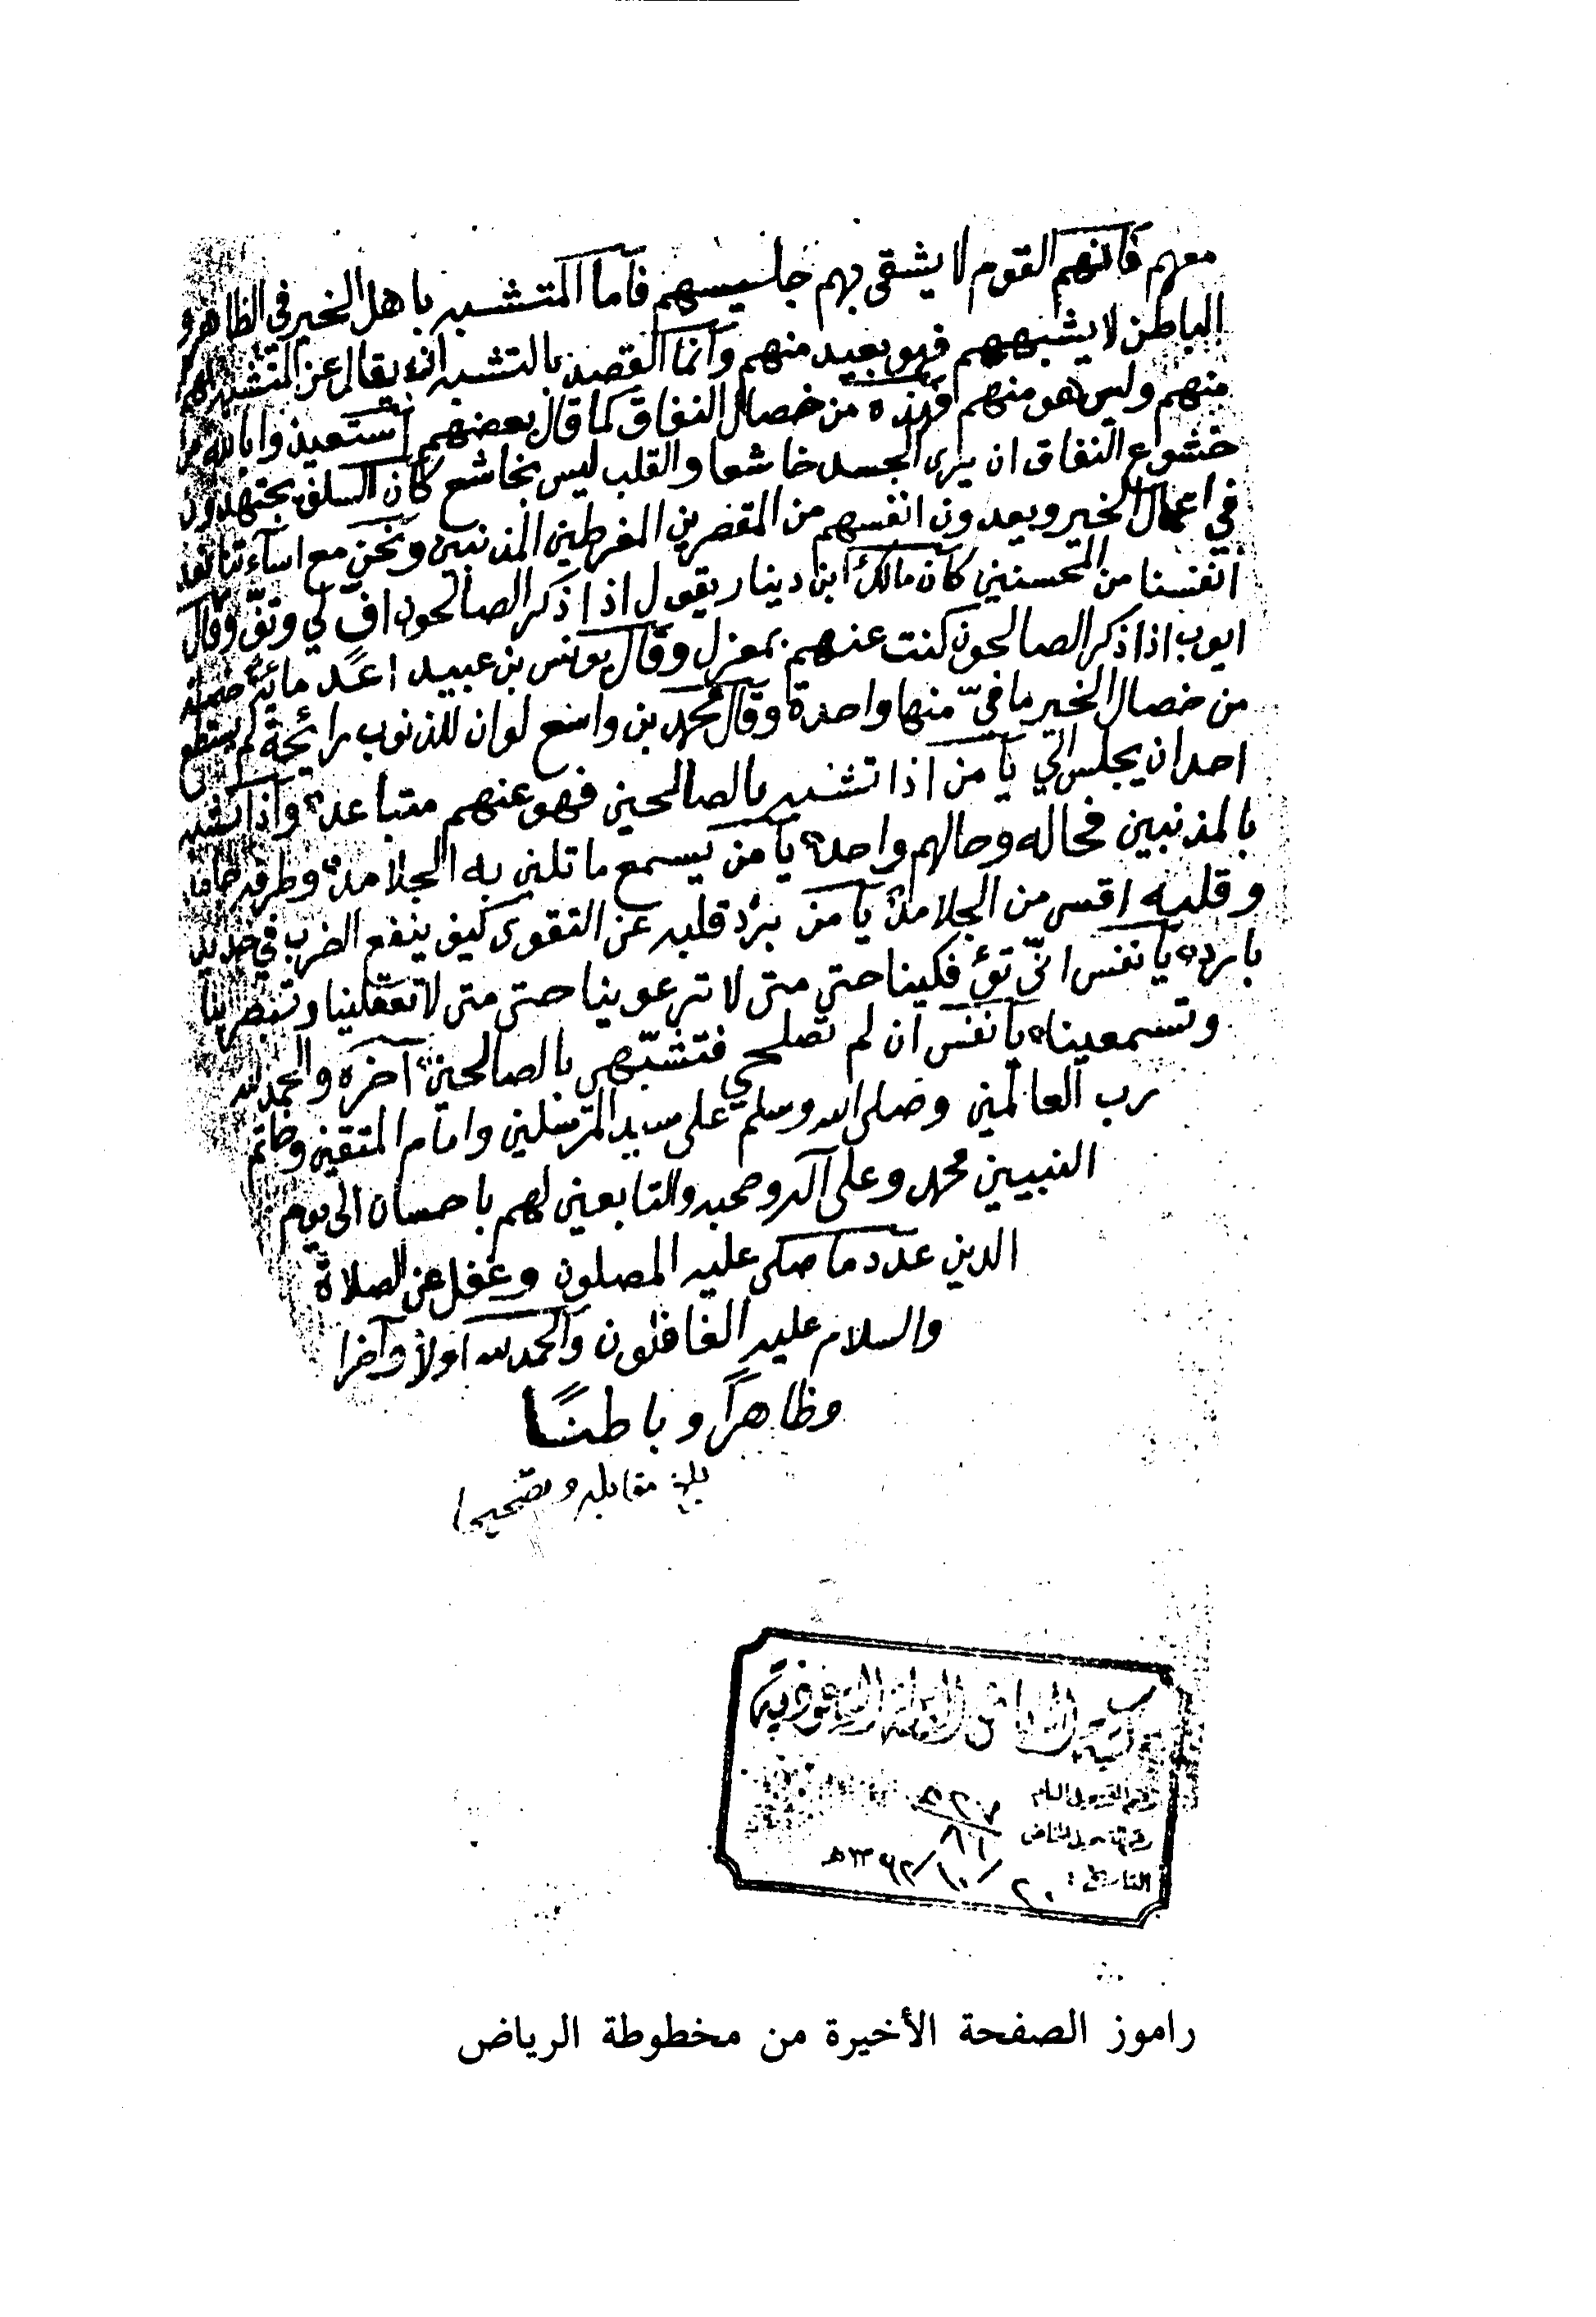 معهم فانهم القوم لا يشقى بهم جليسهم فاما المتشبه باهل الخير في الظاهر و
الباطن لا يشبههم فهو بعيد منهم وانما القصد بالتشبه ان يقال عن المتشبه انه
منهم وليس هو منهم فهذه من خصال النفاق كما قال بعضهم استعيذوا بالله من
خشوع النفاق ان يرى الجسد خاشعا والقلب ليس بخاشع كان السلف يجتهدون
في اعمال الخير ويعدون انفسهم من المقصرين المفرطين المذنبين ونحن مع اسآءتنا نعد
انفسنا من المحسنين كان مالك ابن دينار يقول اذا ذكر الصالحون اف لي وتفّ وقال
ايوب اذا ذكر الصالحون كنت عنهم بمعزل وقال يونس بن عبيد اعدّ مائة خصلة
من خصال الخير ما فيّ منها واحدة وقال محمد بن واسع لو ان للذنوب رائحة لم يستطع
احد ان يجلس الي يا من اذا تشبه بالصالحين فهو عنهم متباعد واذا تشبه
بالمذنبين فحاله وحالهم واحد يا من يسمع ما تلين به الجلامد وطرفه جامد
وقلبه اقسى من الجلامد يا من برد قلبه عن التقوى كيف ينفع الضرب في حديد
بارد يا نفس انّى تؤفكينا حتى متى لا ترعوينا حتى متى لا تعقلينا وتبصرينا
وتسمعينا يا نفس ان لم تصلحي فتشبّهي بالصالحين آخره والحمد لله
رب العالمين وصلى الله وسلم على سيد المرسلين وامام المتقين وخاتم
النبيين محمد وعلى آله وصحبه والتابعين لهم باحسان الى يوم
الدين عدد ما صلى عليه المصلون وغفل عن الصلاة
والسلام عليه الغافلون والحمد لله اولاً وآخرا
وظاهراً وباطنًا
بلغ مقابلة وتصحيحا
الرياض السعودية
رقم التسجيل العام
رقم التسجيل الخاص ٨٦
التاريخ: ٢٠/١٠/١٣٩٢هـ
راموز الصفحة الأخيرة من مخطوطة الرياض